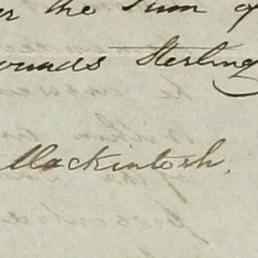 the Sum of
ounds Sterling
Mackintosh.